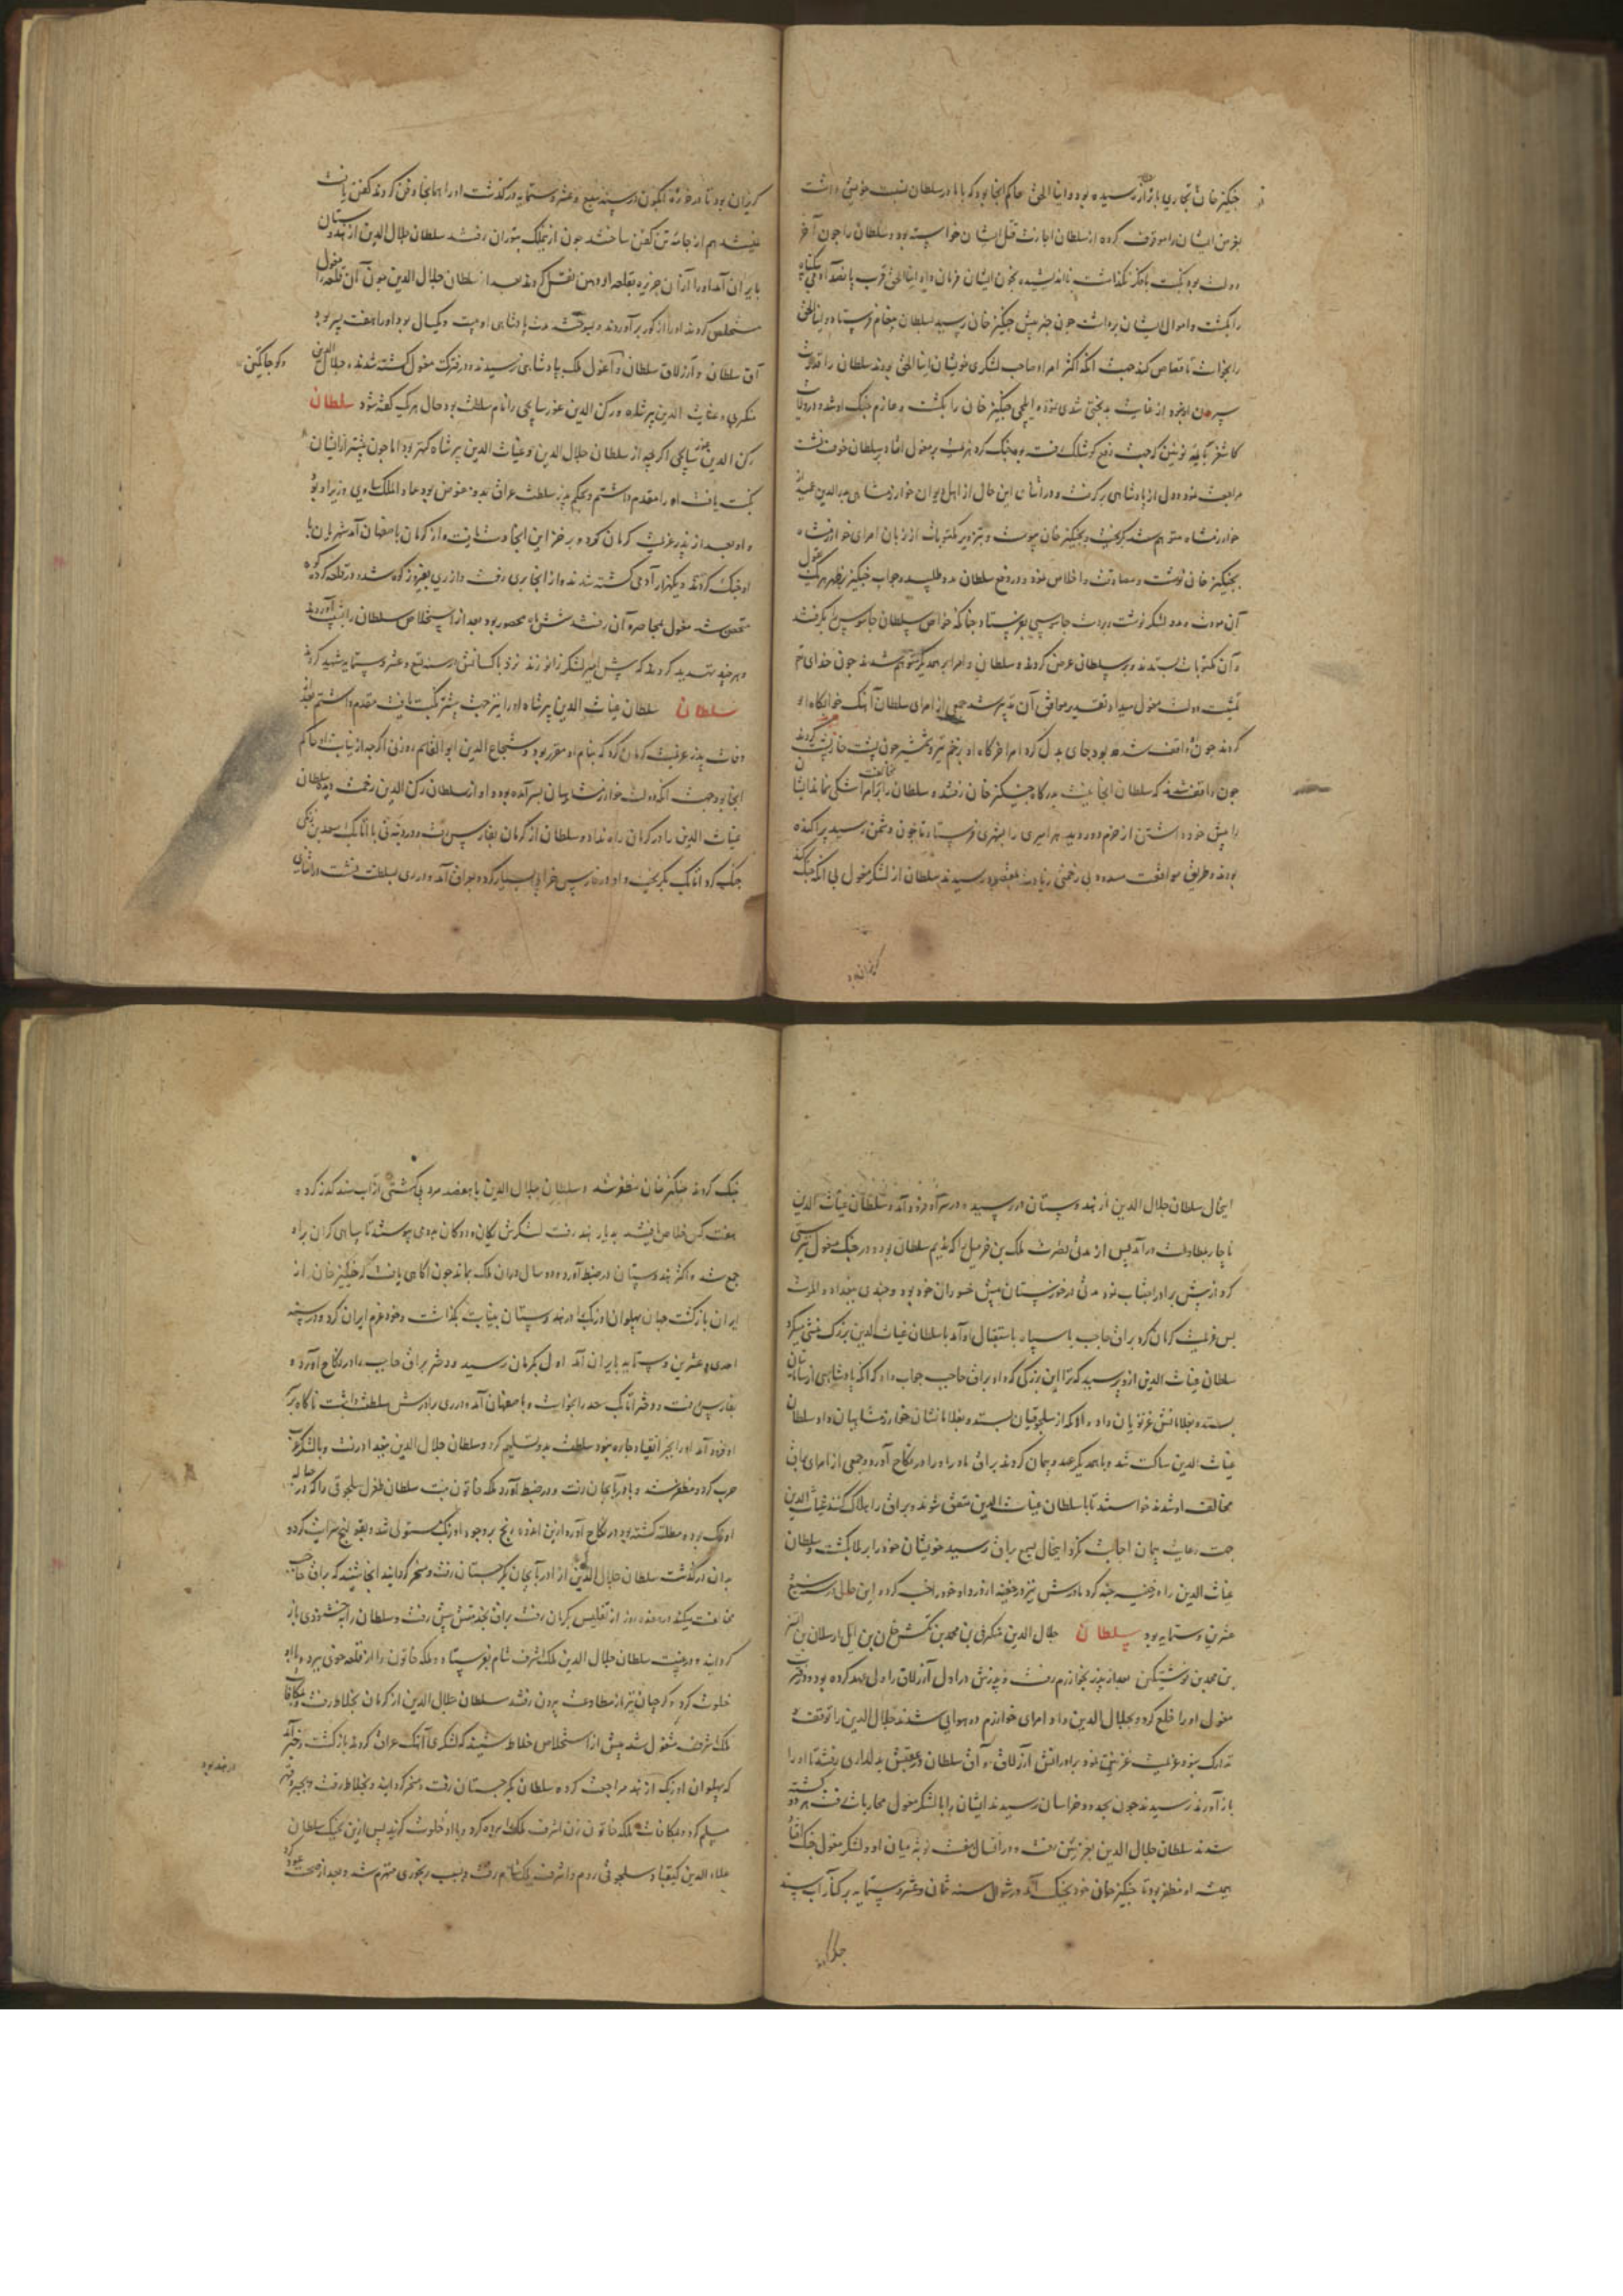 جنکیز خان تجاری باترار رسیده بود و اینالجق حاکم انجا بود که با مادر سلطان نسبت خویشی داشت
بغرض ایشان را موقوف کرده از سلطان اجازت قتل ایشان خواسته بود و سلطان را جون آخر
دولت بود نکبت بامکر نکذاشت نااندیشیده بخون ایشان فرمان داد اینالجق قرب پانصد آدمی بیکناه
را بکشت و اموال ایشان برداشت جون خبر پیش جنکیز خان رسید بسلطان پیغام فرستاد و اینالجق
را بخواست تا قصاص کند جهت آنکه اکثر امرا و صاحب لشکری خویشان اینالجق بودند سلطان را قدرت
سپردن او نبود از غایت بدبختی تندی نمود و ایلجی جنکیز خان را بکشت و عازم جنک او شد و در ولایت
کاشغر با نوینی که جهت دفع کوشلک رفته بود جنک کرد هراسی بر مغول افتاد و سلطان خوف کشت
مراجعت نمود و دل از پادشاهی برکرفت و در اثنای این حال از اهل دیوان خوارزمشاهی بدرالدین عمید از
خوارزمشاه متوهم شد بکریخت و بجنکیز خان پیوست و بتزویر مکتوبات از زبان امرای خوارزمشاه
بجنکیز خان نوشت و معاونت و اخلاص نمود و در دفع سلطان مدد طلبیده و جواب جنکیز بظهر هر یک قبول
آن مودت و مدد لشکر نوشت و بدست جاسوسی بفرستاد جنانکه خواص سلطان جاسوس را بکرفتند
و آن مکتوبات بستدند و بر سلطان عرض کردند و سلطان و امرا بر همدیکر متوهم شدند جون خدای تع
تمشیت دولت مغول میداد تقدیر موافق آن تدبیر شد جمعی از امرای سلطان آهنک خوابکاه او
کردند جون واقف شده بود جای بدل کرد امرا خرکاه او بزخم تیر و شمشیر جون پشت خارپشت کردند
جون واقف شدند که سلطان انجا نیست بدرکاه جنکیز خان رفتند و سلطان را بر مخالفت امرا شکی نماند ایشان
را پیش خود داشتن از حزم دور دید هر امیری را بشهری فرستاد تا جون دشمن رسید پراکنده
بودند و طریق موافقت مسدود بی زحمتی زیادت بمقصود رسیدند سلطان از لشکر مغول بی آنکه جنک کند
کریزان بود
کریزان بود تا در جزیره آبکون در سنه سبع و عشر و ستمایه درکذشت او را همانجا دفن کردند کفن یافت
نمیشد هم از جامه تن کفن ساختند جون از ملک بتوران رفتند سلطان جلال الدین از هندوستان
بایران آمد او را از آن جزیره بقلعه اردهن نقل کردند بعد از سلطان جلال الدین جون آن قلعه را مغول
مستخلص کردند او را از کور برآوردند و بسوختند مدت پادشاهی او بیست و یکسال بود او را هفت پسر بود
آق سلطان و ارزلاق سلطان و آغول ملک بپادشاهی نرسیدند و در فترت مغول کشته شدند و جلال الدین
منکبری و غیاث الدین پیرشاه و رکن الدین غورسایجی را نام سلطنت بود حال هر یک کفته شود سلطان
رکن الدین غورسایجی اکرجه از سلطان جلال الدین و غیاث الدین پیرشاه کهتر بود اما جون پیشتر از ایشان
نکبت یافت او را مقدم داشتم و بحکم پدر سلطنت عراق بدو مفوض بود عماد الملک ساوی وزیر او بود
و او بعد از پدر عزیمت کرمان کرد و بر خزاین انجا دست یافت و از کرمان باصفهان آمد شهریان با
او جنک کردند و یکهزار آدمی کشته شدند و از انجا بری رفت و از ری بفیروزکوه شد و در قلعه کرد کوه
متحصن شد مغول بمحاصره آن رفتند شش ماه محصور بود بعد از استخلاص سلطان را بشیب آوردند
و هرجند تهدید کردند که پیش امیر لشکر زانو زند نزد با کسانش در سنه تسع و عشر و ستمایه شهید کردند
سلطان سلطان غیاث الدین پیرشاه او را نیز جهت پیشتر نکبت یافت مقدم داشتم بعد
وفات پدر عزیمت کرمان کرد که بنام او مقرر بود و شجاع الدین ابوالقاسم زوزنی اکرجه از نیابت او حاکم
انجا بود جهت آنکه دولت خوارزمشاهیان بسر آمده بود و او از سلطان رکن الدین زحمت دیده سلطان
غیاث الدین را در کرمان راه نداد و سلطان از کرمان بفارس رفت و در دونبه با اتابک سعد بن زنکی
جنک کرد اتابک بکریخت و او در فارس خرابی بسیار کرد و بعراق آمد و در ری بسلطنت نشست در اثنای
و کوجایتکین
ایحال سلطان جلال الدین از هندوستان در رسید و در سراه فرود آمد و سلطان غیاث الدین
ناجار بمطاوعت درآمد پس از مدتی نصرت ملک بن خرمیل را که ندیم سلطان بود و در جنک مغول سستی
کرد از پیش برادر اجتناب نمود مدتی در خوزستان پیش خسوران خود بود و جندی ببغداد و الموت
پس عزیمت کرمان کرد براق حاجب با سپاه باستقبال او آمد با سلطان غیاث الدین بزرک منشی میکرد
سلطان غیاث الدین ازو پرسید که ترا این بزرکی که داد براق حاجب جواب داد که آنکه پادشاهی از سامانیان
بستد و بغلامانش غزنویان داد و آنکه از سلجوقیان بستد و بغلامانشان خوارزمشاهیان داد سلطان
غیاث الدین ساکت شد و با همدیکر عهد و پیمان کردند براق مادر او را در نکاح آورد و جمعی از امرای براق
مخالف او شدند خواستند تا با سلطان غیاث الدین متفق شوند و براق را هلاک کنند غیاث الدین
جهت رعایت پیمان اجابت نکرد ایحال بسمع براق رسید خویشان خود را برملا بکشت و سلطان
غیاث الدین را در خفیه خبه کرد مادرش نیز در خفیه ازو داد خود راغب کرد و این حال در سنه سبع
عشرین و ستمایه بود سلطان جلال الدین منکبرنی بن محمد بن تکش خان بن ایل ارسلان بن اتسز
بن محمد بن نوشتکین بعد از پدر بخوارزم رفت و پدرش در اول ارزلاق را ولی عهد کرده بود و در فترت
مغول او را خلع کرد و بجلال الدین داد و امرای خوارزم دوهوایی شدند جلال الدین را توقف و
تدارک نبود عزیمت غزنین نمود برادرانش ارزلاق و آق سلطان در عقبش بدلداری رفتند تا او را
باز آورند نرسیدند جون بحدود خراسان رسیدند ایشان را با لشکر مغول محاربات رفت هر دو کشته
شدند سلطان جلال الدین بغزنین رفت و در آن سال هفت نوبت میان او و لشکر مغول جنک اتفاق
همیشه او مظفر بود تا جنکیز خان خود بجنک آمد در شوال سنه ثمان و عشر و ستمایه بر کنار آب سند
جنک کردند
جنک کردند جنکیز خان مظفر شد و سلطان جلال الدین با هفصد مرد بی کشتی از آب سند کذر کرد و
هفت کس خلاص یافتند بدیار هند رفت لشکرش یکان و دوکان بدو می پیوستند تا سپاهی کران برو
جمع شد و اکثر هندوستان در ضبط آورد و دو سال در آن ملک بماند جون آکاهی یافت که جنکیز خان از
ایران بازکشت جهان پهلوان اوزبک را در هندوستان بنیابت بکذاشت و خود عزم ایران کرد و در سنه
احدی و عشرین و ستمایه بایران آمد اول بکرمان رسید و دختر براق حاجب را در نکاح آورد و
بفارس رفت و دختر اتابک سعد را بخواست و باصفهان آمد و در ری برادرش سلطنت داشت ناکاه بر
او فرود آمد او را بجز انقیاد جاره نبود سلطنت بدو تسلیم کرد و سلطان جلال الدین ببغداد رفت و با لشکر عرب
حرب کرد و مظفر شد و باذربایجان رفت و در ضبط آورد ملکه خاتون بنت سلطان طغرل سلجوقی را که در حباله
اوزبک بود و مطلقه کشته بود در نکاح آورد ازین اندوه رنج بر وجود اوزبک مستولی شد و بقولنج سرایت کرد و
بدان درکذشت سلطان جلال الدین از اذربایجان بکرجستان رفت و مسخر کردانید انجا شنید که براق حاجب
مخالفت میکند در هفده روز از تفلیس بکرمان رفت براق بخدمتش پیش رفت و سلطان را بخشنودی باز
کردانید و در غیبت سلطان جلال الدین ملک اشرف شام بفرستاد و ملکه خاتون را از قلعه خوی ببرد و با او
خلوت کرد و کرجیان نیز از مطاوعت بیرون رفتند سلطان جلال الدین از کرمان بخلاط رفت و بمکافات
ملک اشرف مشغول شد پیش از استخلاص خلاط شنید که لشکری آهنک عراق کردند بازکشت و خبر آمد
که پهلوان اوزبک از هند مراجعت کرده سلطان بکرجستان رفت و مسخر کردانید و بخلاط رفت و بجبر و قهر
مسلم کرد و بمکافات ملکه خاتون زن اشرف ملک را برده کرد و با او خلوت کزید پس ازین بجنک سلطان
علاء الدین کیقباد سلجوقی روم و اشرف ملک شام رفت و بسبب رنجوری منهزم شد و بعد از صحت عود کرد
در هند بود